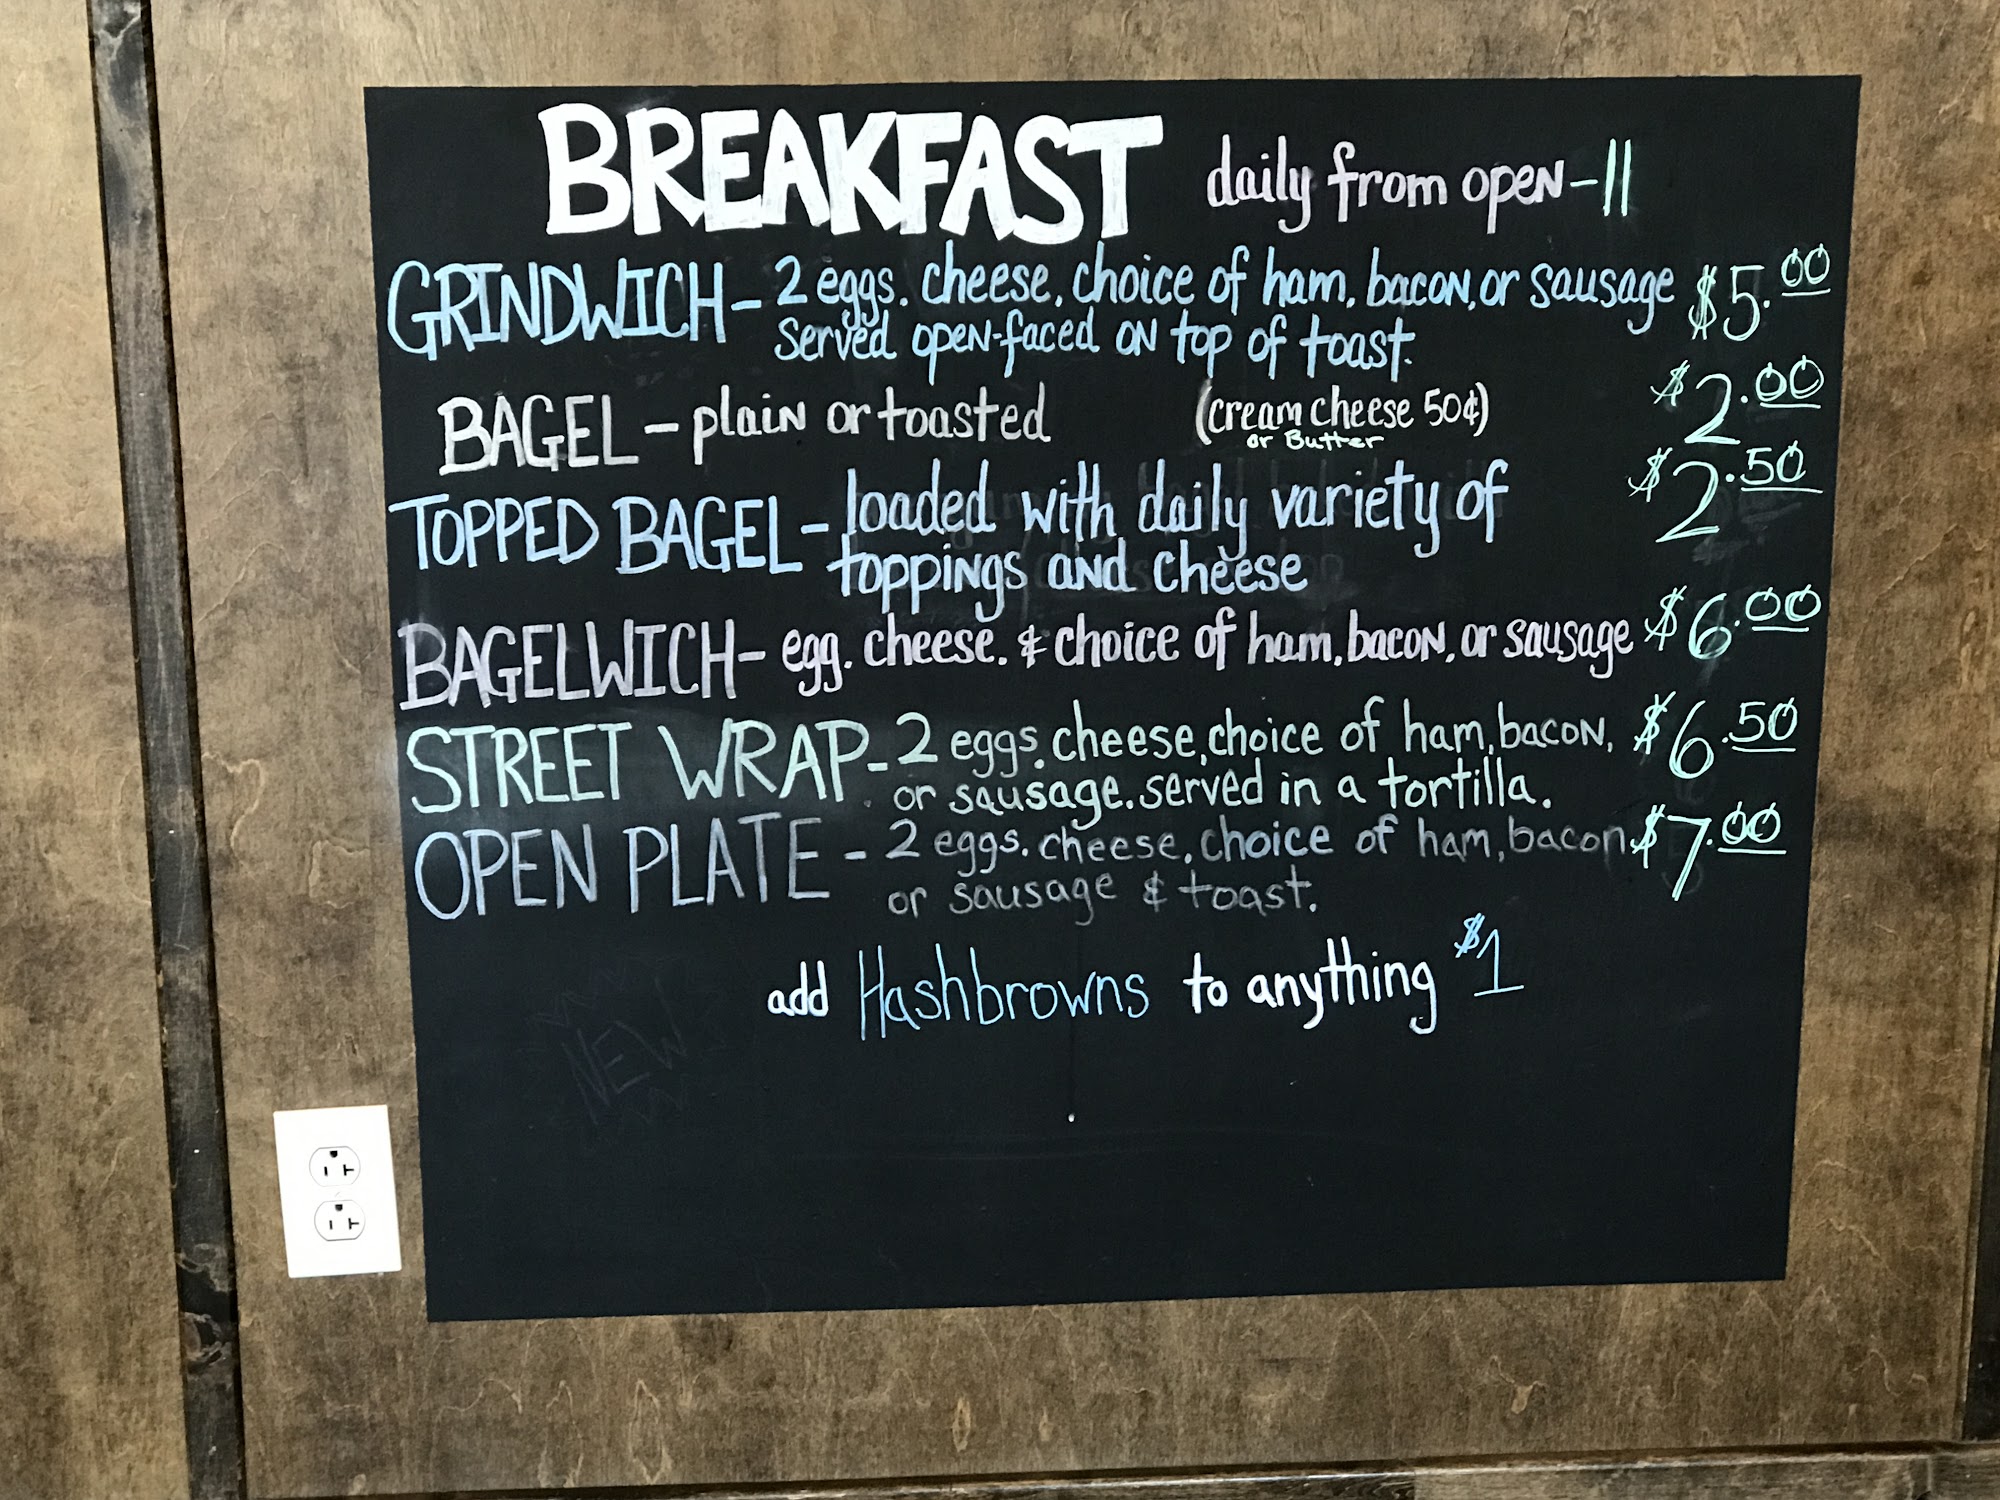 BREAKFAST daily from open-11
GRINDWICH - 2 eggs. cheese, choice of ham, bacon, or sausage $5.00
served open-faced on top of toast.
BAGEL - plain or toasted (cream cheese 50¢) $2.00
or Butter
TOPPED BAGEL - loaded with daily variety of $2.50
toppings and cheese
BAGELWICH - egg. cheese. & choice of ham, bacon, or sausage $6.00
STREET WRAP - 2 eggs. cheese, choice of ham, bacon, $6.50
or sausage. served in a tortilla.
OPEN PLATE - 2 eggs. cheese, choice of ham, bacon, $7.00
or sausage & toast.
add Hashbrowns to anything $1
NEW